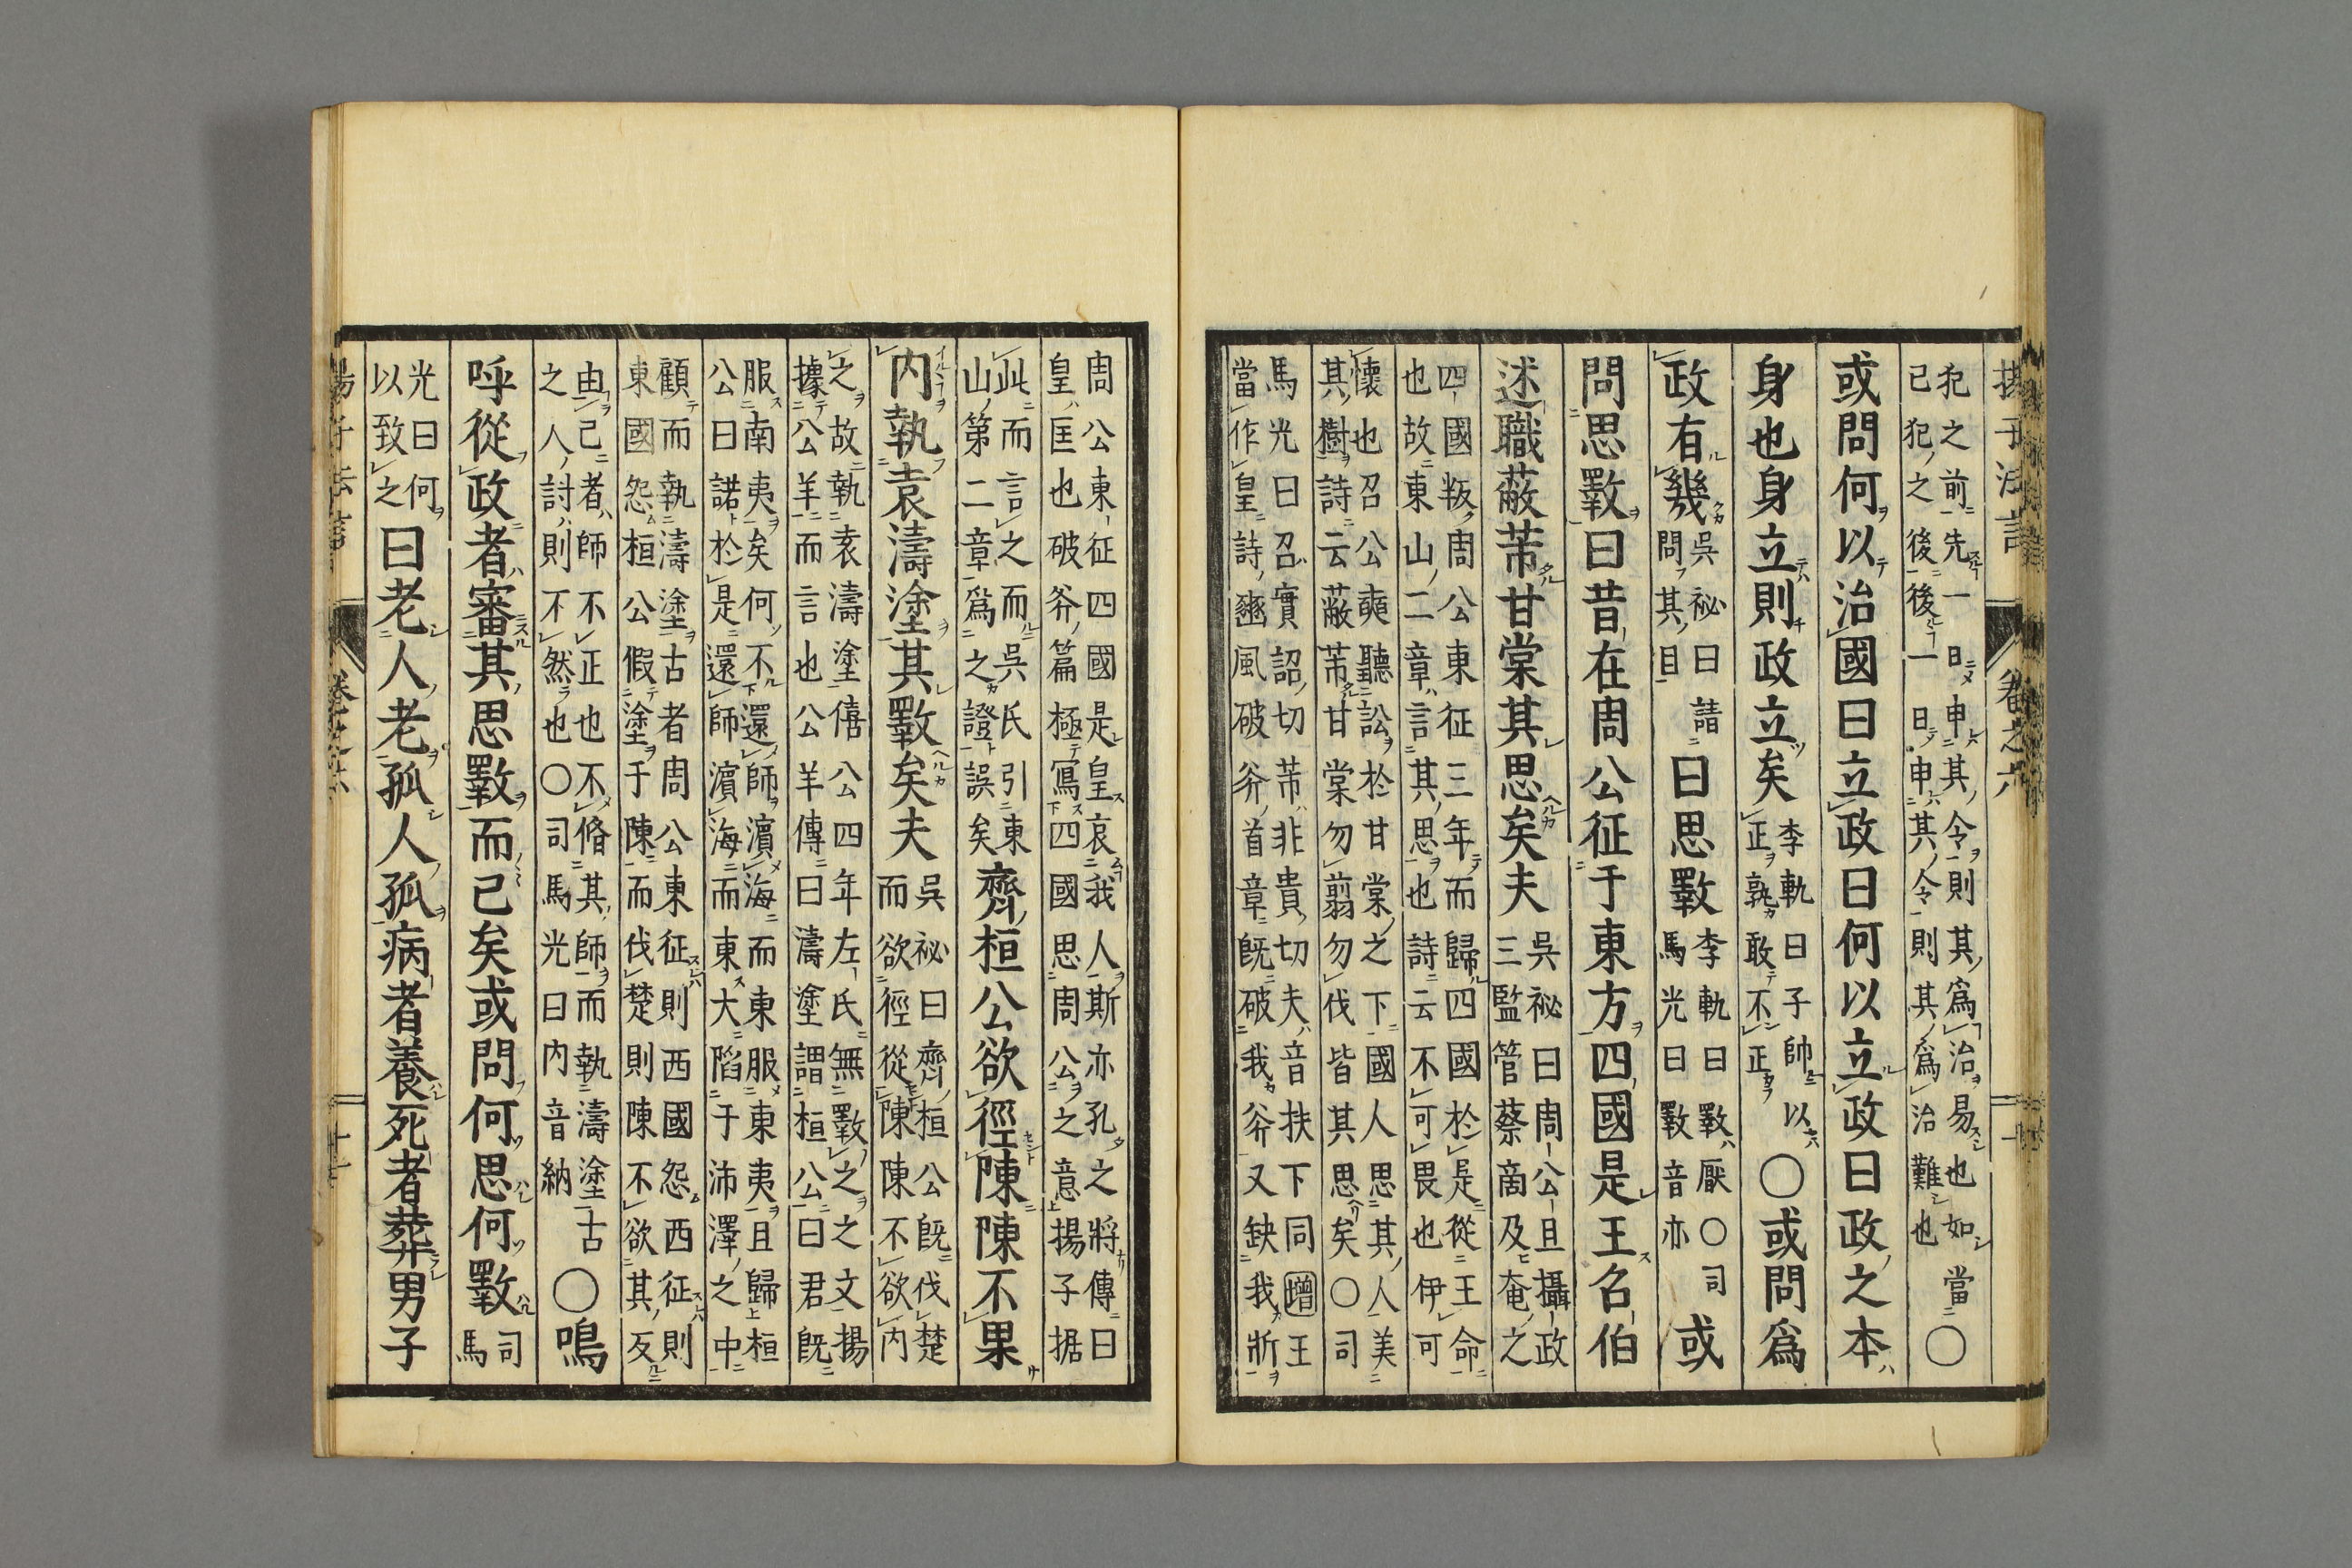 揚子法言　卷之六　十一
犯之前先一日申其令則其爲治易也如當
己犯之後後一日申其令則其爲治難也〇
或問何以治國曰立政曰何以立政曰政之本
身也身立則政立矣李軌曰子帥以
正孰敢不正〇或問爲
政有幾吳祕曰請
問其目曰思斁李軌曰斁厭〇司
馬光曰斁音亦或
問思斁曰昔在周公征于東方四國是王召伯
述職蔽芾甘棠其思矣夫吳祕曰周公旦攝政
三監管蔡啇及奄之
四國叛周公東征三年而歸四國於是從王命
也故東山二章言其思也詩云不可畏也伊可
懷也召公奭聽訟於甘棠之下國人思其人美
其樹詩云蔽芾甘棠勿翦勿伐皆其思矣〇司
馬光曰召實詔切芾非貴切夫音扶下同增王
當作皇詩豳風破斧首章既破我斧又缺我斨
周公東征四國是皇哀我人斯亦孔之將傳曰
皇匡也破斧篇極寫四國思周公之意揚子据
此而言之而吳氏引東
山第二章爲之證誤矣齊桓公欲徑陳陳不果
内執袁濤塗其斁矣夫吳祕曰齊桓公既伐楚
而欲徑從陳陳不欲内
之故執袁濤塗僖公四年左氏無斁之之文揚
據公羊而言也公羊傳曰濤塗謂桓公曰君既
服南夷矣何不還師濱海而東服東夷且歸桓
公曰諾於是還師濱海而東大陷于沛澤之中
顧而執濤塗古者周公東征則西國怨西征則
東國怨桓公假塗于陳而伐楚則陳不欲其反
由己者師不正也不脩其師而執濤塗古
之人討則不然也〇司馬光曰内音納〇嗚
呼從政者審其思斁而已矣或問何思何斁司
馬
光曰何
以致之曰老人老孤人孤病者養死者葬男子